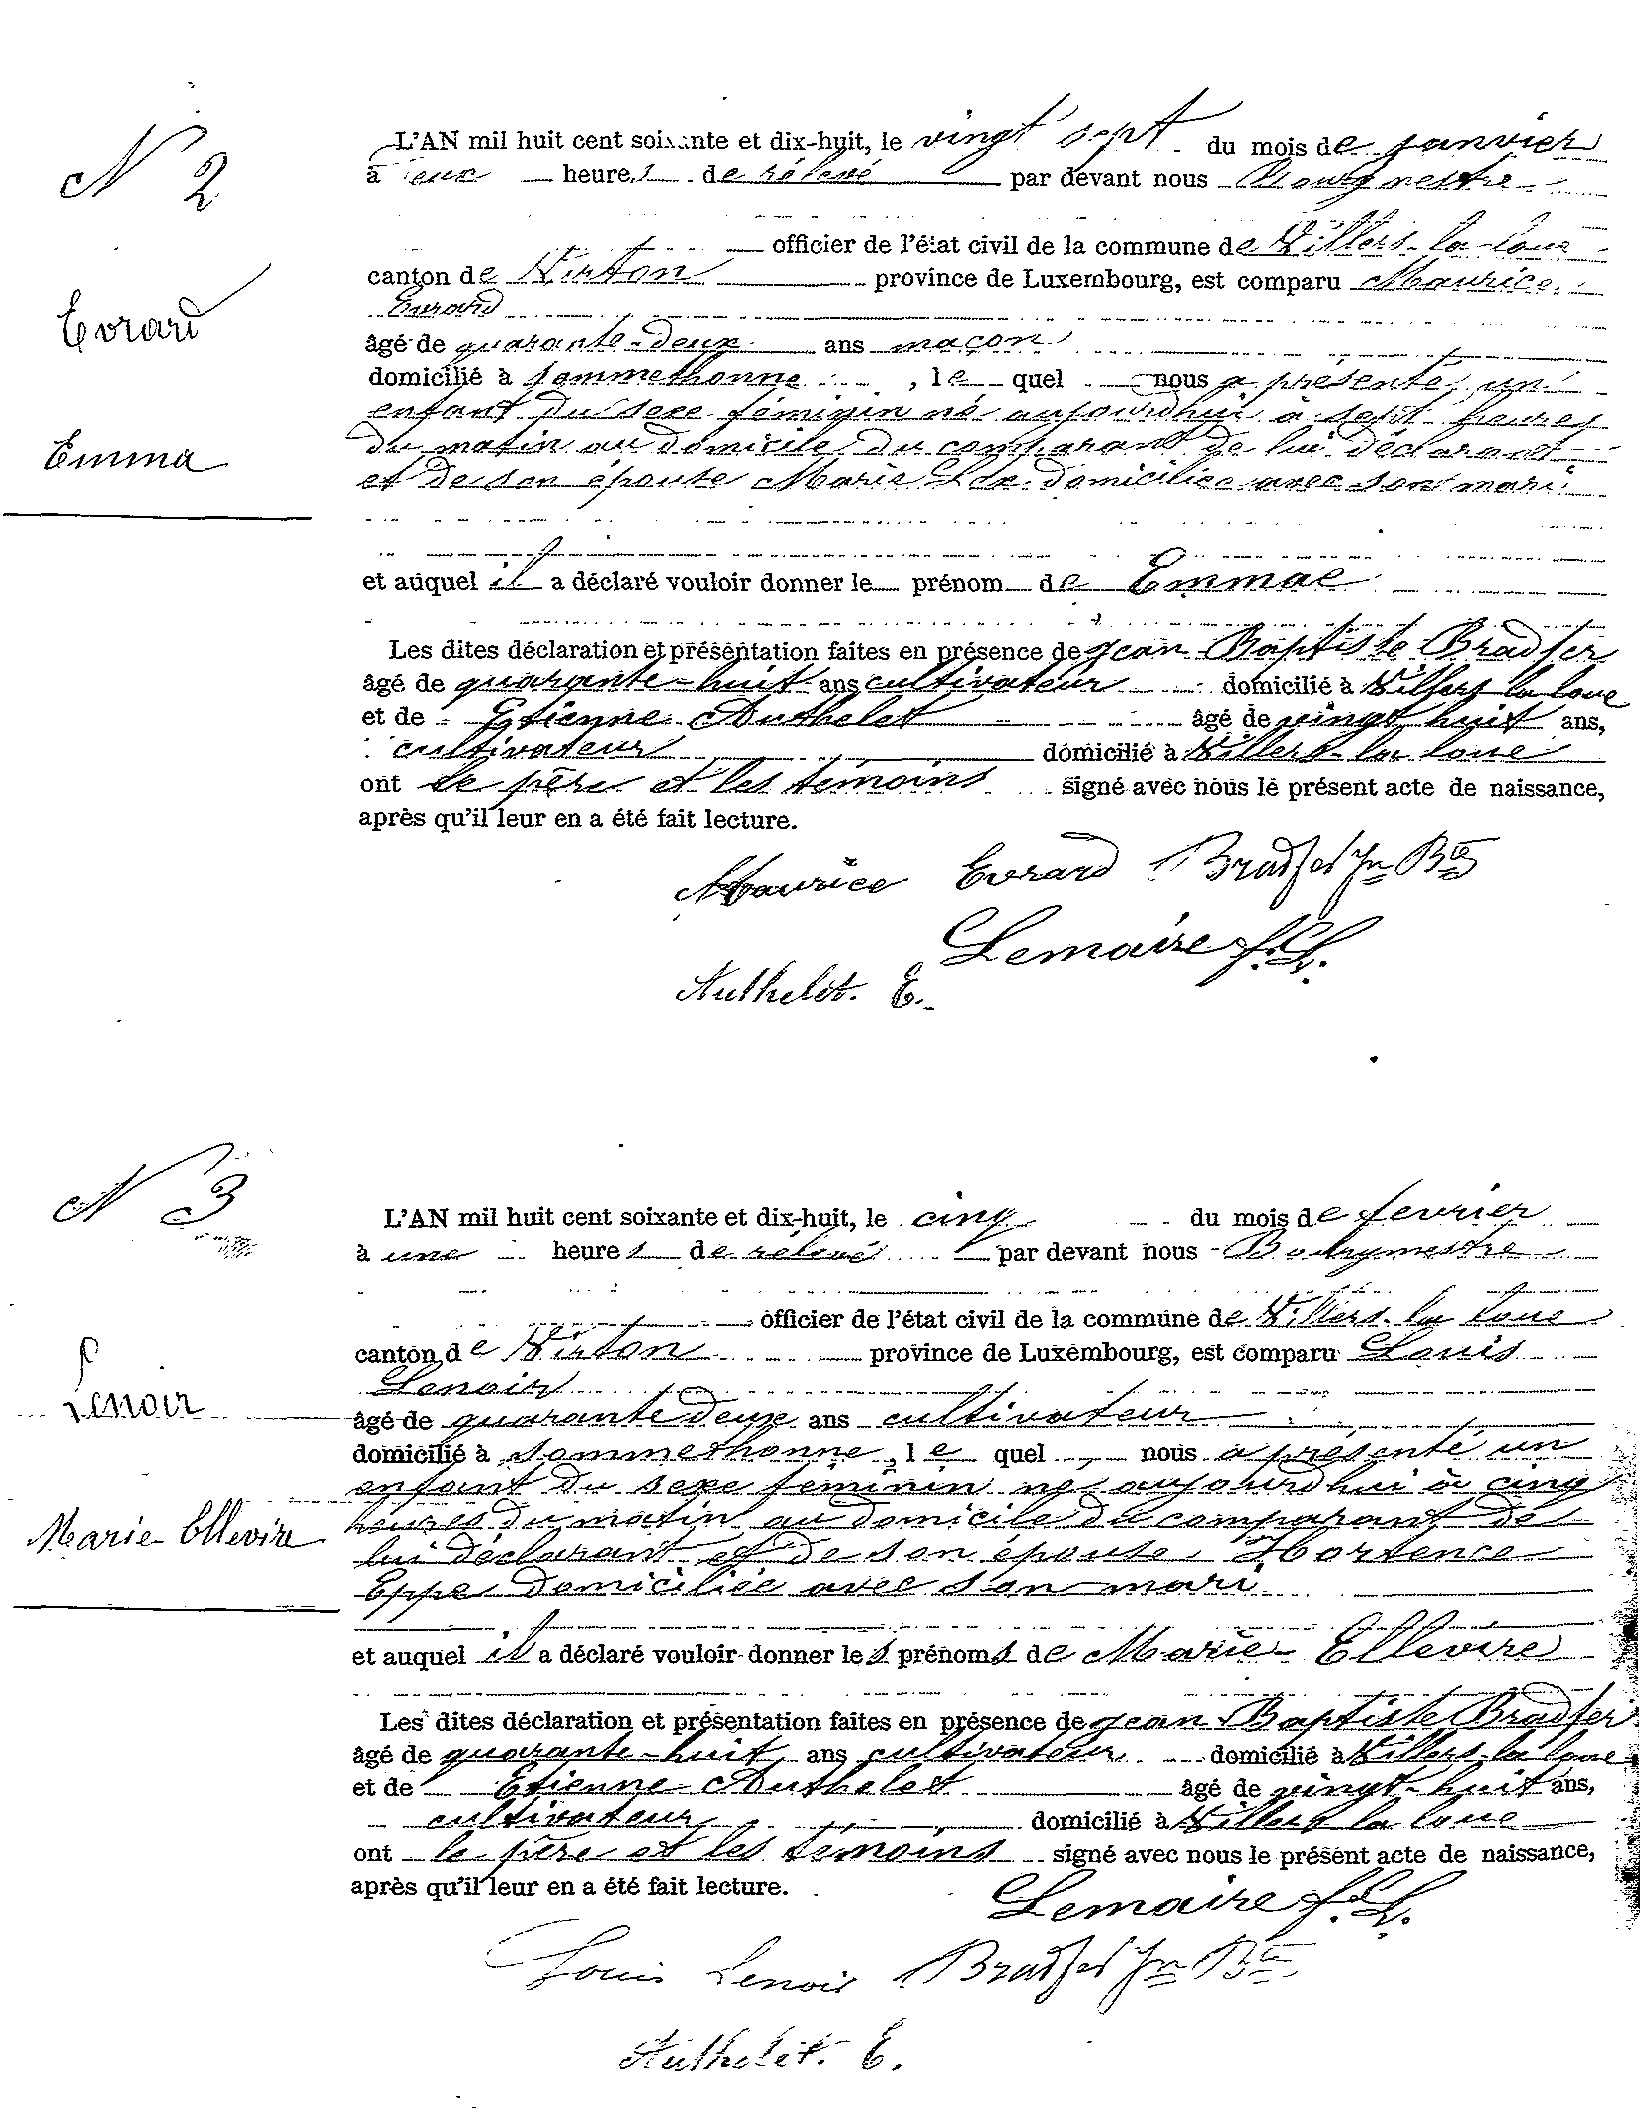 N 2
L'AN mil huit cent soixante et dix-huit, le vingt sept du mois de janvier
à deux heures de relevé par devant nous Bourgmestre
officier de l'état civil de la commune de Villers-la-loue
canton de Virton province de Luxembourg, est comparu Maurice
Evrard
Evrard
âgé de quarante-deux ans maçon
domicilié à Sommethonne, le quel nous a présenté un
enfant du sexe féminin né aujourd'hui à sept heures
du matin au domicile du comparant de lui déclarant
Emma
et de son épouse Marie domiciliée avec son mari
et auquel il a déclaré vouloir donner le prénom de Emmae
Les dites déclaration et présentation faites en présence de Jean Baptiste Bradfer
âgé de quarante-huit ans cultivateur domicilié à Villers la loue
et de Etienne Authelet âgé de vingt huit ans,
cultivateur domicilié à Villers-la loue
ont le père et les témoins signé avec nous le présent acte de naissance,
après qu'il leur en a été fait lecture.
Maurice Evrard Bradfer Jn Bte
Lemaire f. L.
Authelet. E.
N 3
L'AN mil huit cent soixante et dix-huit, le cinq du mois de fevrier
à une heures de relevé par devant nous Bourgmestre
officier de l'état civil de la commune de Villers-la loue
canton de Virton province de Luxembourg, est comparu Louis
Lenoir
Lenoir
âgé de quarante deux ans cultivateur
domicilié à Sommethonne, le quel nous a présenté un
enfant du sexe féminin né aujourd'hui à cinq
Marie Ellevire
heures du matin au domicile du comparant de
lui déclarant et de son épouse Hortence
Eppe domiciliée avec son mari
et auquel il a déclaré vouloir donner les prénoms de Marie-Ellevire
Les dites déclaration et présentation faites en présence de Jean Baptiste Bradfer
âgé de quarante-huit ans cultivateur domicilié à Villers-la loue
et de Etienne Authelet âgé de vingt-huit ans,
cultivateur domicilié à Villers la loue
ont le père et les témoins signé avec nous le présent acte de naissance,
après qu'il leur en a été fait lecture.
Lemaire f. L.
Louis Lenoir Bradfer Jn Bte
Authelet. E.